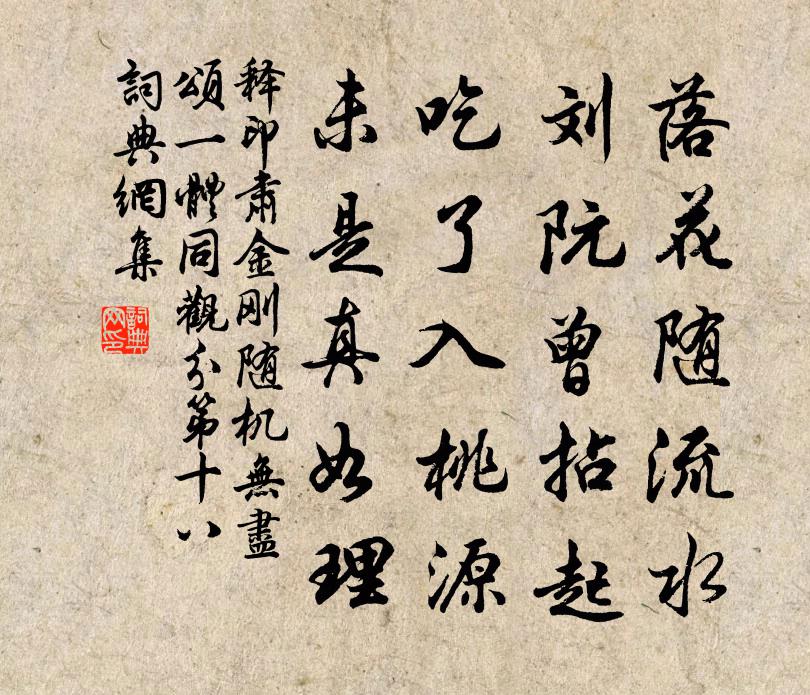 落花随流水
刘阮曾拈起
吃了入桃源
未是真如理
释印肃金刚随机無盡
頌一體同觀分第十八
詞典網集
詞典
网印